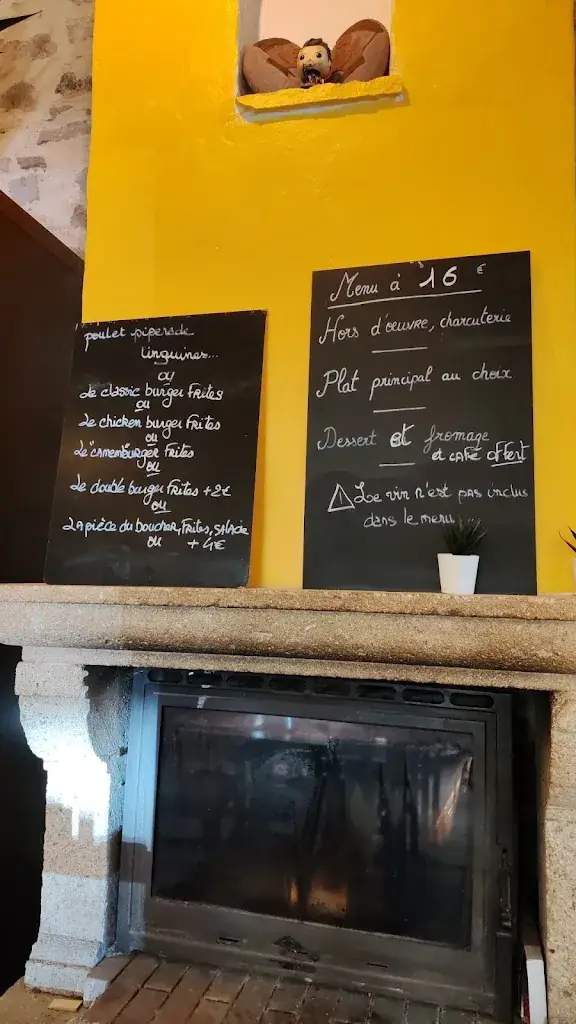 poulet piperade
linguines...
ou
Le classic burger Frites
ou
Le chicken burger Frites
ou
Le "camem"burger Frites
ou
Le double burger Frites +2€
ou
La pièce du boucher, Frites, salade
ou +4€
Menu à 16 €
Hors d'oeuvre, charcuterie
Plat principal au choix
Dessert et fromage
et café offert
⚠ Le vin n'est pas inclus
dans le menu